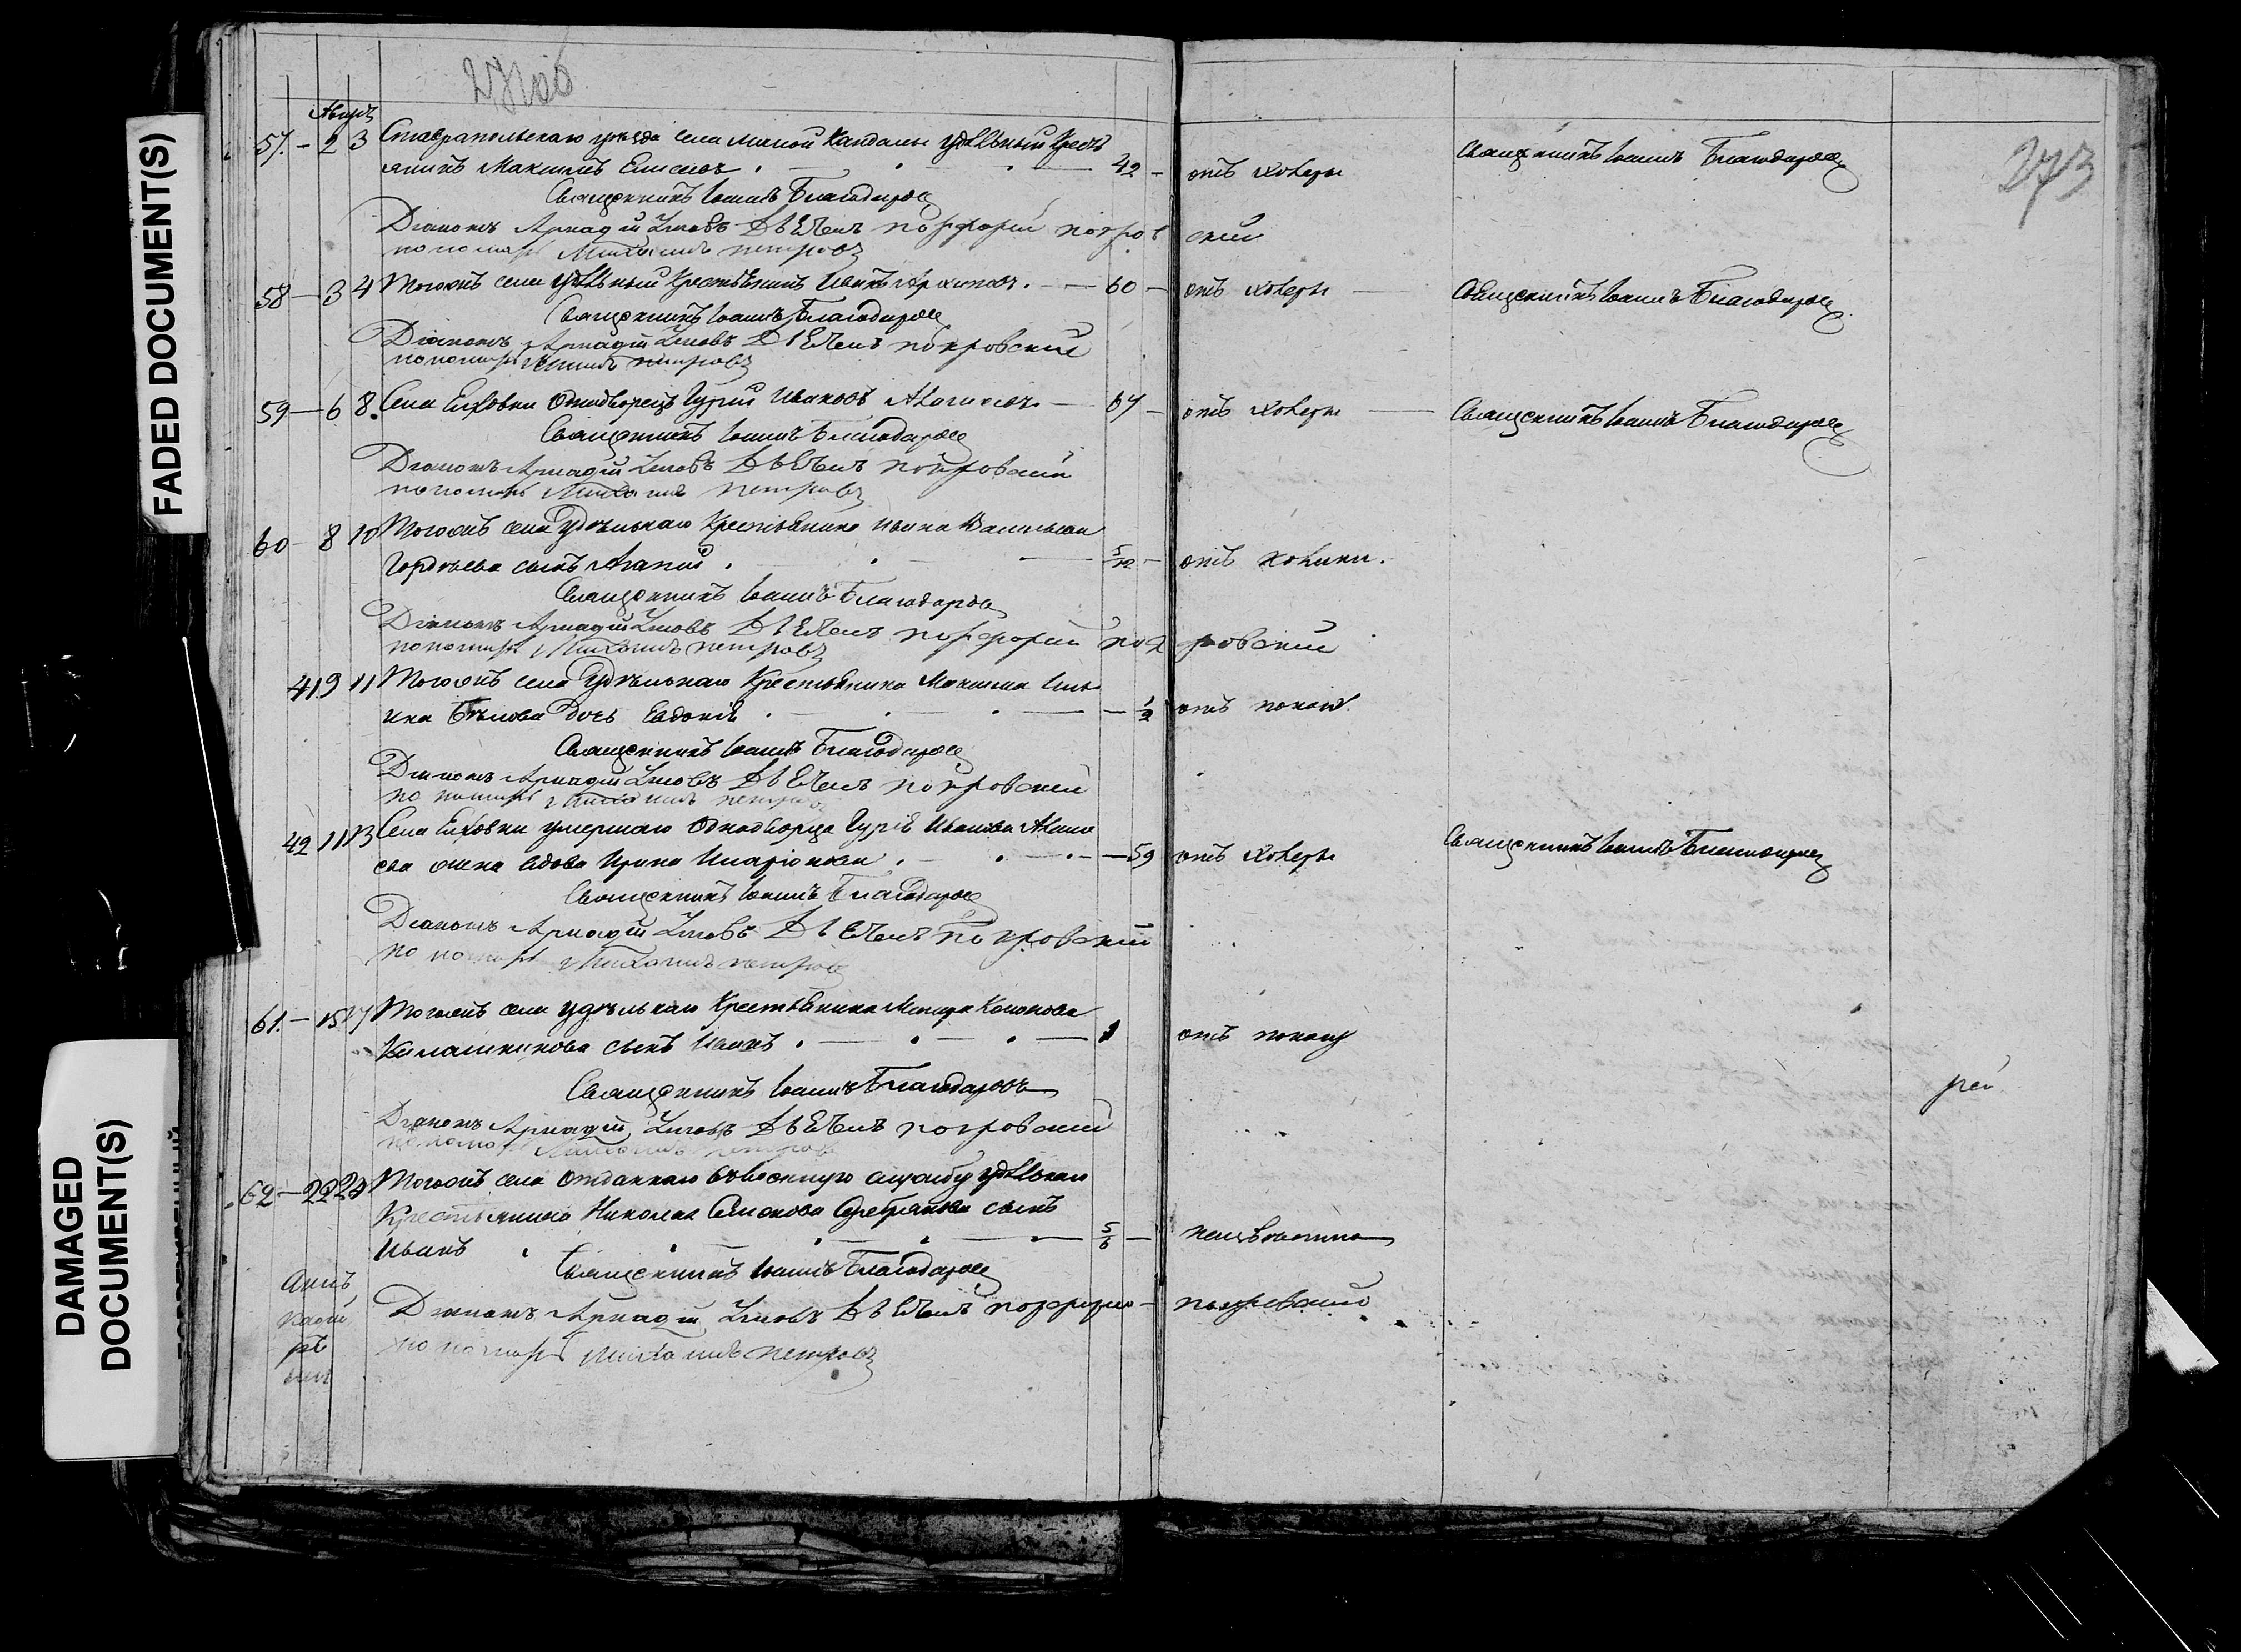 FADED DOCUMENT(S)
DAMAGED DOCUMENT(S)
273
57. – 2 3 Ставропольскаго уѣзда села Малой Кандалы удѣльный Кресть
янинъ Максимъ Елисеевъ 42 – отъ холеры Священникъ Іоаннъ Благодаровъ
Священникъ Іоаннъ Благодаровъ
Діаконъ Аркадій Дьячекъ Порфирій Покров скій
пономарь Михаилъ Петровъ
58 – 3 4 Тогожъ села удѣльный Крестьянинъ Иванъ Архиповъ. – 60 – отъ холеры – Священникъ Іоаннъ Благодаровъ
Священникъ Іоаннъ Благодаровъ
Діаконъ Аркадій Дьячекъ Покровскій
пономарь Михаилъ Петровъ
59 – 6 8. Села Елховки Однодворецъ Гурій Ивановъ – 67 – отъ холеры – Священникъ Іоаннъ Благодаровъ
Священникъ Іоаннъ Благодаровъ
Діаконъ Аркадій Дьячекъ Покровскій
пономарь Михаилъ Петровъ
60 – 8 10 Тогожъ села Удѣльнаго Крестьянина Ивана Васильева
Гордѣева сынъ Агапій. 5/12 – отъ
Священникъ Іоаннъ Благодаровъ
Діаконъ Аркадій Дьячекъ Порфирій Пок ровскій
пономарь Михаилъ Петровъ
41 9 11 Тогожъ села Удѣльнаго Крестьянина Максима Иль
ина Бѣлова Дочь Евдокія – 1/2 отъ поноса
Священникъ Іоаннъ Благодаровъ
Діаконъ Аркадій Дьячекъ Покровскій
пономарь Михаилъ Петровъ
42 11 13 Села Елховки умершаго Однодворца Гурія Иванова
ева жена вдова Ирина Иларіонова. – 59 отъ холеры Священникъ Іоаннъ Благодаровъ
Священникъ Іоаннъ Благодаровъ
Діаконъ Аркадій Дьячекъ Покровскій
пономарь Михаилъ Петровъ
61. – 15 17 Тогожъ села удѣльнаго Крестьянина Кононова
Калашникова сынъ Иванъ. – 1 отъ поносу
Священникъ Іоаннъ Благодаровъ
Діаконъ Аркадій Дьячекъ Покровскій
пономарь Михаилъ Петровъ
62 – 22 24 Тогожъ села отданнаго въ военную службу удѣльнаго
Крестьянина Николая Семенова Серебрякова сынъ
Иванъ 5/6 – неизвѣстно
Священникъ Іоаннъ Благодаровъ
Діаконъ Аркадій Дьячекъ Порфирій – Покровскій
пономарь Михаилъ Петровъ